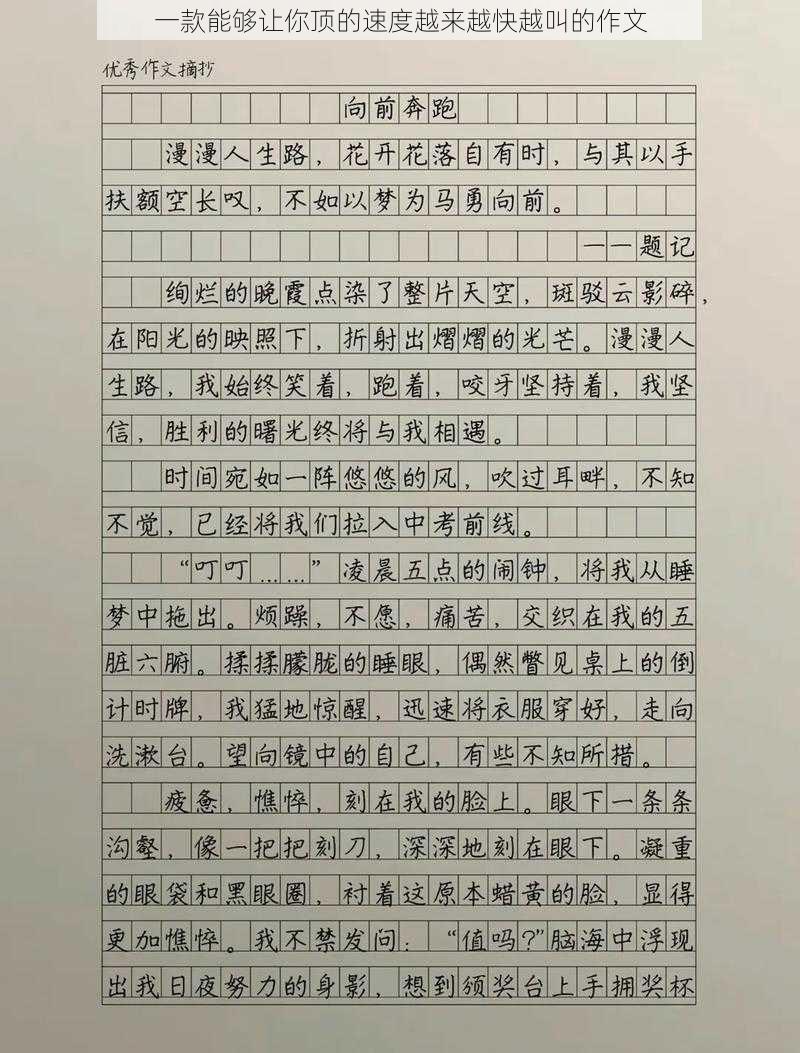 一款能够让你顶的速度越来越快越叫的作文
优秀作文摘抄
向前奔跑
漫漫人生路，花开花落自有时，与其以手
扶额空长叹，不如以梦为马勇向前。
——题记
绚烂的晚霞点染了整片天空，斑驳云影碎，
在阳光的映照下，折射出熠熠的光芒。漫漫人
生路，我始终笑着，跑着，咬牙坚持着，我坚
信，胜利的曙光终将与我相遇。
时间宛如一阵悠悠的风，吹过耳畔，不知
不觉，已经将我们拉入中考前线。
“叮叮……”凌晨五点的闹钟，将我从睡
梦中拖出。烦躁，不愿，痛苦，交织在我的五
脏六腑。揉揉朦胧的睡眼，偶然瞥见桌上的倒
计时牌，我猛地惊醒，迅速将衣服穿好，走向
洗漱台。望向镜中的自己，有些不知所措。
疲惫，憔悴，刻在我的脸上。眼下一条条
沟壑，像一把把刻刀，深深地刻在眼下。凝重
的眼袋和黑眼圈，衬着这原本蜡黄的脸，显得
更加憔悴。我不禁发问：“值吗？”脑海中浮现
出我日夜努力的身影，想到颁奖台上手拥奖杯